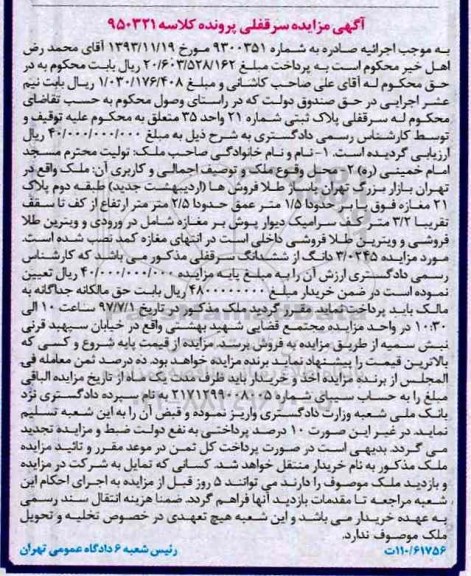 آگهی مزایده سرقفلی پرونده کلاسه ۹۵۰۳۲۱
به موجب اجرائیه صادره به شماره ۹۳۰۰۳۵۱ مورخ ۱۳۹۳/۱۱/۱۹ آقای محمد رض
اهل خیر محکوم است به پرداخت مبلغ ۲۰/۶۰۳/۵۲۸/۱۶۲ ریال بابت محکوم به در
حق محکوم له آقای علی صاحب کاشانی و مبلغ ۱/۰۳۰/۱۷۶/۴۰۸ ریال بابت نیم
عشر اجرایی در حق صندوق دولت که در راستای وصول محکوم به حسب تقاضای
محکوم له سرقفلی پلاک ثبتی شماره ۲۱ واحد ۳۵ متعلق به محکوم علیه توقیف و
توسط کارشناس رسمی دادگستری به شرح ذیل به مبلغ ۴۰/۰۰۰/۰۰۰/۰۰۰ ریال
ارزیابی گردیده است. ۱- نام و نام خانوادگی صاحب ملک: تولیت محترم مسجد
امام خمینی (ره) ۲- محل وقوع ملک و توصیف اجمالی و کاربری آن: ملک واقع در
تهران بازار بزرگ تهران پاساژ طلا فروش ها (اردیبهشت جدید) طبقه دوم پلاک
۲۱ مغازه فوق با بر حدودا ۱/۵ متر عمق حدودا ۲/۵ متر متر ارتفاع از کف تا سقف
تقریبا ۳/۲ متر کف سرامیک دیوار پوش بر مغازه شامل در ورودی و ویترین طلا
فروشی و ویترین طلا فروشی داخلی است در انتهای مغازه کمد نصب شده است.
مورد مزایده ۳/۰۲۴۵ دانگ از ششدانگ سرقفلی مذکور می باشد که کارشناس
رسمی دادگستری ارزش آن را به مبلغ پایه مزایده ۴۰/۰۰۰/۰۰۰/۰۰۰ ریال تعیین
نموده است در ضمن خریدار مبلغ ۴۸۰۰۰۰۰۰۰۰ ریال بابت حق مالکانه جداگانه به
مالک باید پرداخت نماید مقرر گردید ملک مذکور در تاریخ ۹۷/۷/۱ ساعت ۱۰ الی
۱۰:۳۰ در واحد مزایده مجتمع قضایی شهید بهشتی واقع در خیابان سپهبد قرنی
نبش سمیه از طریق مزایده به فروش برسد. مزایده از قیمت پایه شروع و کسی که
بالاترین قیمت را پیشنهاد نماید برنده مزایده خواهد بود. ده درصد ثمن معامله فی
المجلس از برنده مزایده اخذ و خریدار باید ظرف مدت یک ماه از تاریخ مزایده الباقی
مبلغ را به حساب سیبای شماره ۲۱۷۱۲۹۹۰۰۸۰۰۵ به نام سپرده دادگستری نزد
بانک ملی شعبه وزارت دادگستری واریز نموده و قبض آن را به این شعبه تسلیم
نماید. در غیر این صورت ۱۰ درصد پرداختی به نفع دولت ضبط و مزایده تجدید
می گردد. بدیهی است در صورت پرداخت کل ثمن در موعد مقرر و تائید مزایده
ملک مذکور به نام خریدار منتقل خواهد شد. کسانی که تمایل به شرکت در مزایده
و بازدید ملک موصوف را دارند می توانند ۵ روز قبل از مزایده به اجرای احکام این
شعبه مراجعه تا مقدمات بازدید آنها فراهم گردد. ضمنا هزینه انتقال سند رسمی
به عهده خریدار می باشد و این شعبه هیچ تعهدی در خصوص تخلیه و تحویل
ملک موصوف ندارد.
۱۱۰/۶۱۷۵۶ت رئیس شعبه ۶ دادگاه عمومی تهران